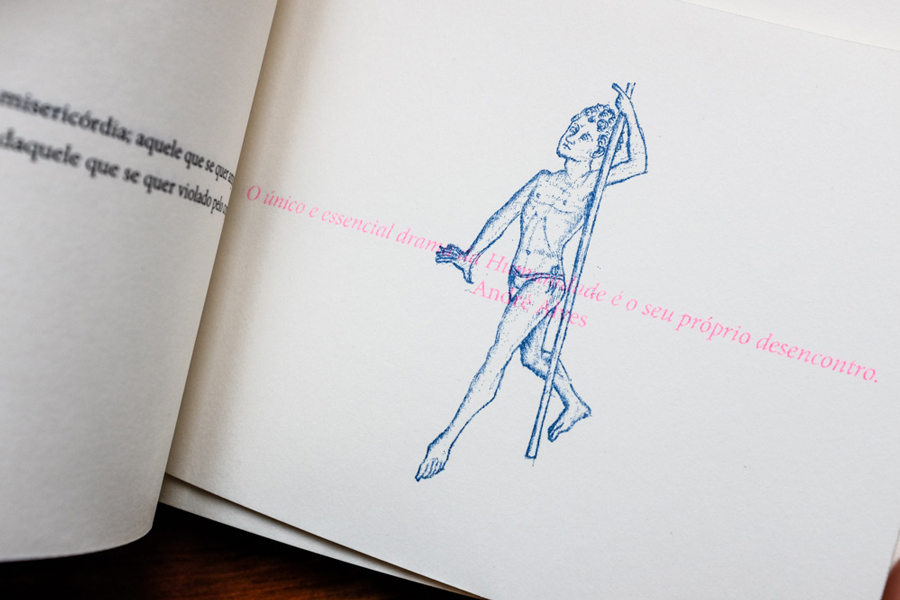 misericórdia; aquele que se quer
daquele que se quer violado pelo
O único e essencial drama da Humanidade é o seu próprio desencontro.
André Alves